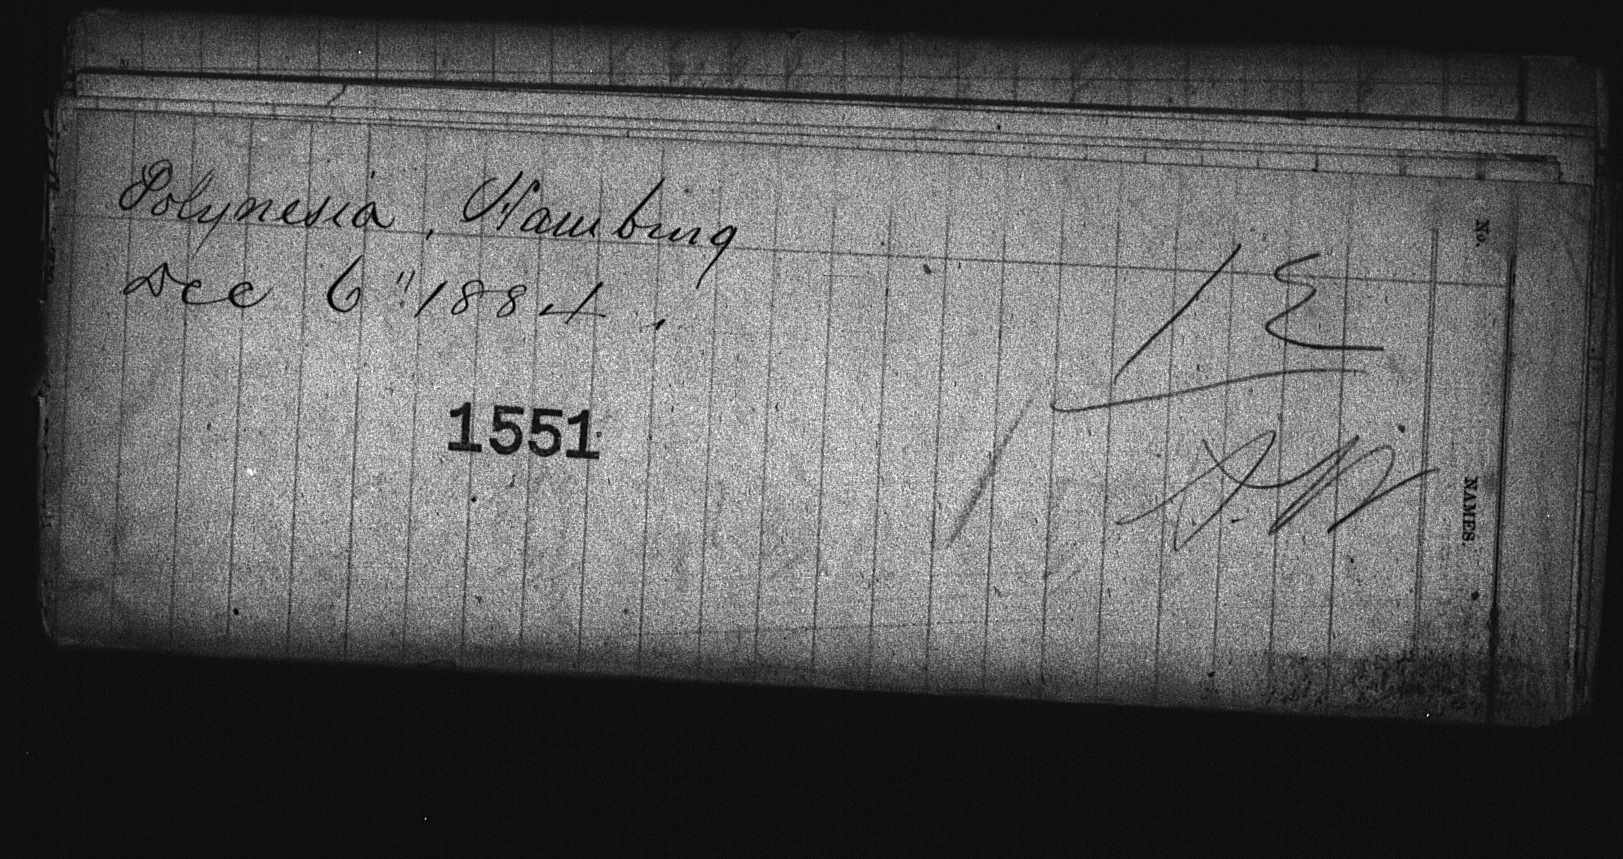 Polynesia, Hamburg
Dec 6" 1884.
1551
No.
NAMES.